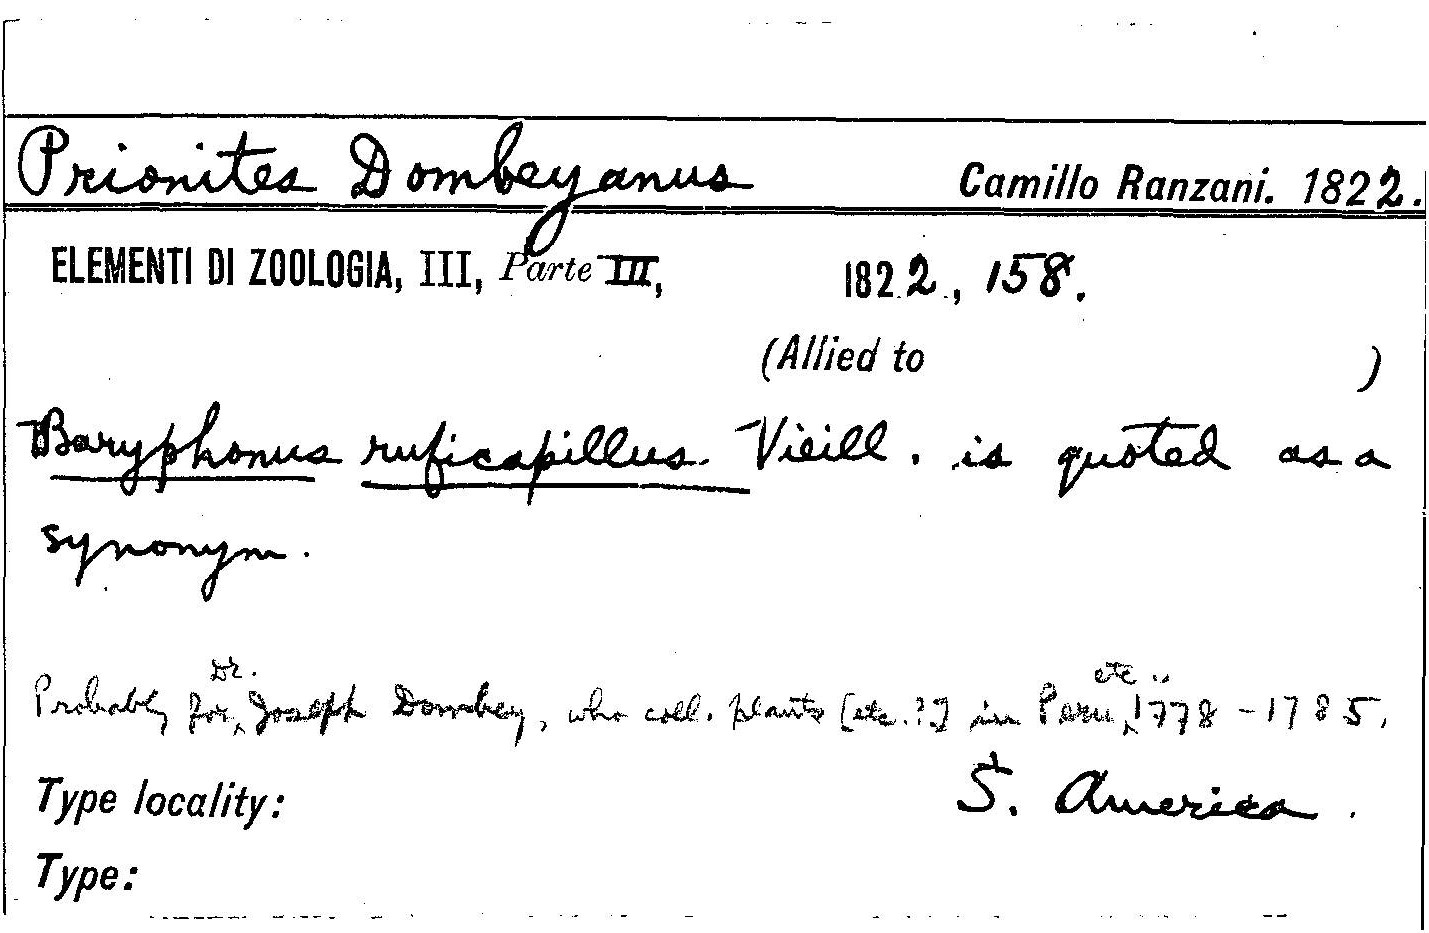 Prionites Dombeyanus Camillo Ranzani. 1822.
ELEMENTI DI ZOOLOGIA, III, Parte III, 1822, 158.
(Allied to )
Baryphonus ruficapillus. Vieill. is quoted as a
synonym.
Probably for Dr. Joseph Dombey, who coll. plants [etc.?] in Peru etc., 1778-1785.
Type locality: S. America.
Type: